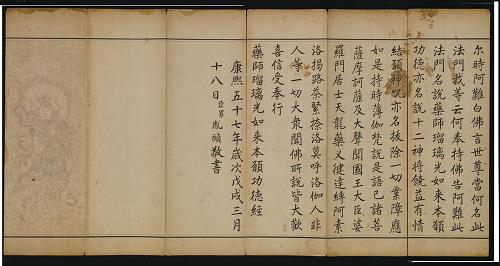 尔時阿難白佛言世尊當何名此
法門我等云何奉持佛告阿難此
法門名說藥師瑠璃光如来本願
功德亦名說十二神將饒益有情
結願神呪亦名拔除一切業障應
如是持時薄伽梵說是語已諸菩
薩摩訶薩及大聲聞國王大臣婆
羅門居士天龍藥义揵達縛阿素
洛揭路荼緊捺洛莫呼洛伽人非
人等一切大衆聞佛所說皆大歡
喜信受奉行
藥師瑠璃光如来本願功德經
康熙五十七年歲次戊戌三月
十八日臣男胤禎敬書